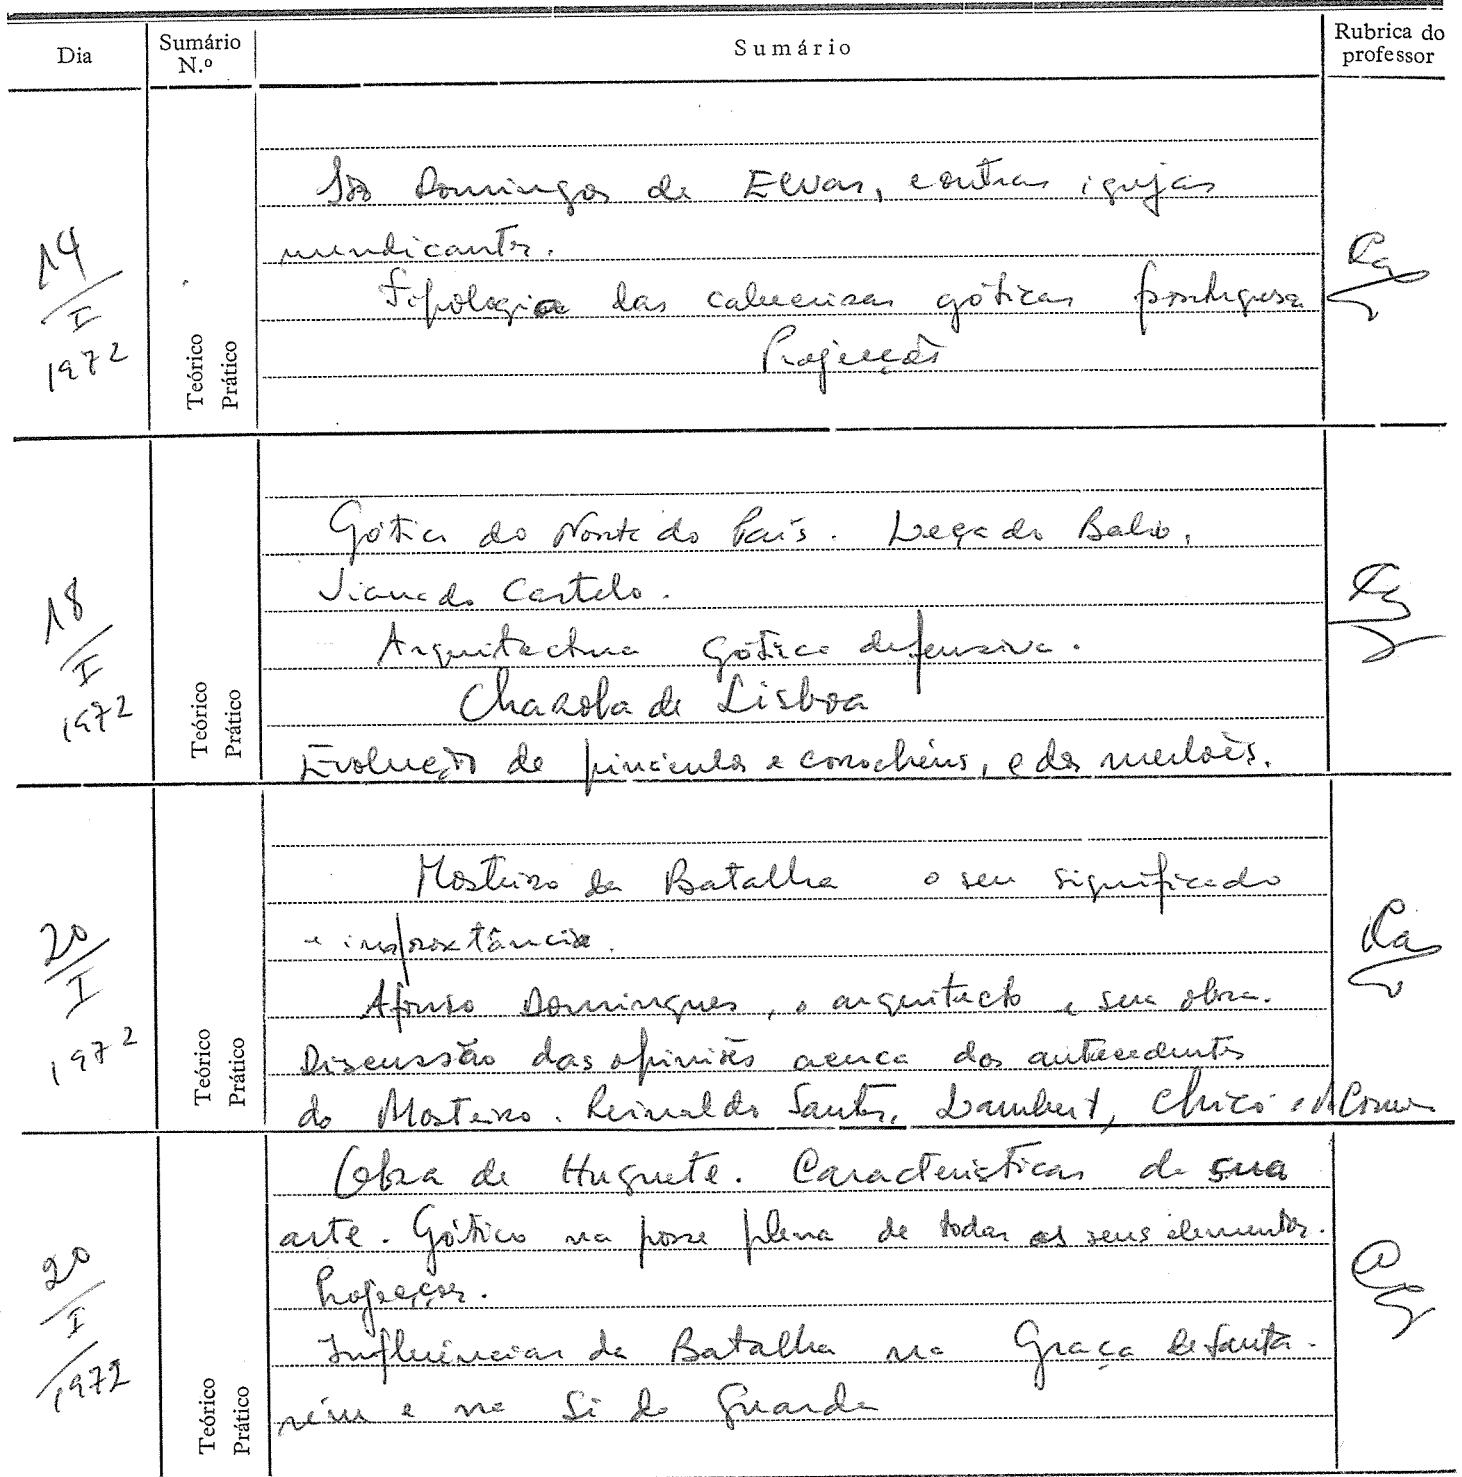 Dia
Sumário N.º
Sumário
Rubrica do professor
14
I
1972
Teórico
Prático
São Domingos de Elvas, e outras igrejas
mendicantes.
Tipologia das cabeceiras góticas portuguesa
Projecções
18
I
1972
Teórico
Prático
Gótico do Norte do País. Leça do Balio,
Viana do Castelo.
Arquitectura gótica defensiva.
Charola de Lisboa
Evolução de pináculos e coruchéus, e dos merlões.
20
I
1972
Teórico
Prático
Mosteiro da Batalha o seu significado
e importância.
Afonso Domingues, o arquitecto e sua obra.
Discussão das opiniões acerca dos antecedentes
do Mosteiro. Reinaldo Santos, Lambert, Chicó
20
I
1972
Teórico
Prático
Obra de Huguete. Características da sua
arte. Gótico na posse plena de todos os seus elementos.
Projecções.
Influências da Batalha na Graça de Santa-
rém e na Sé da Guarda